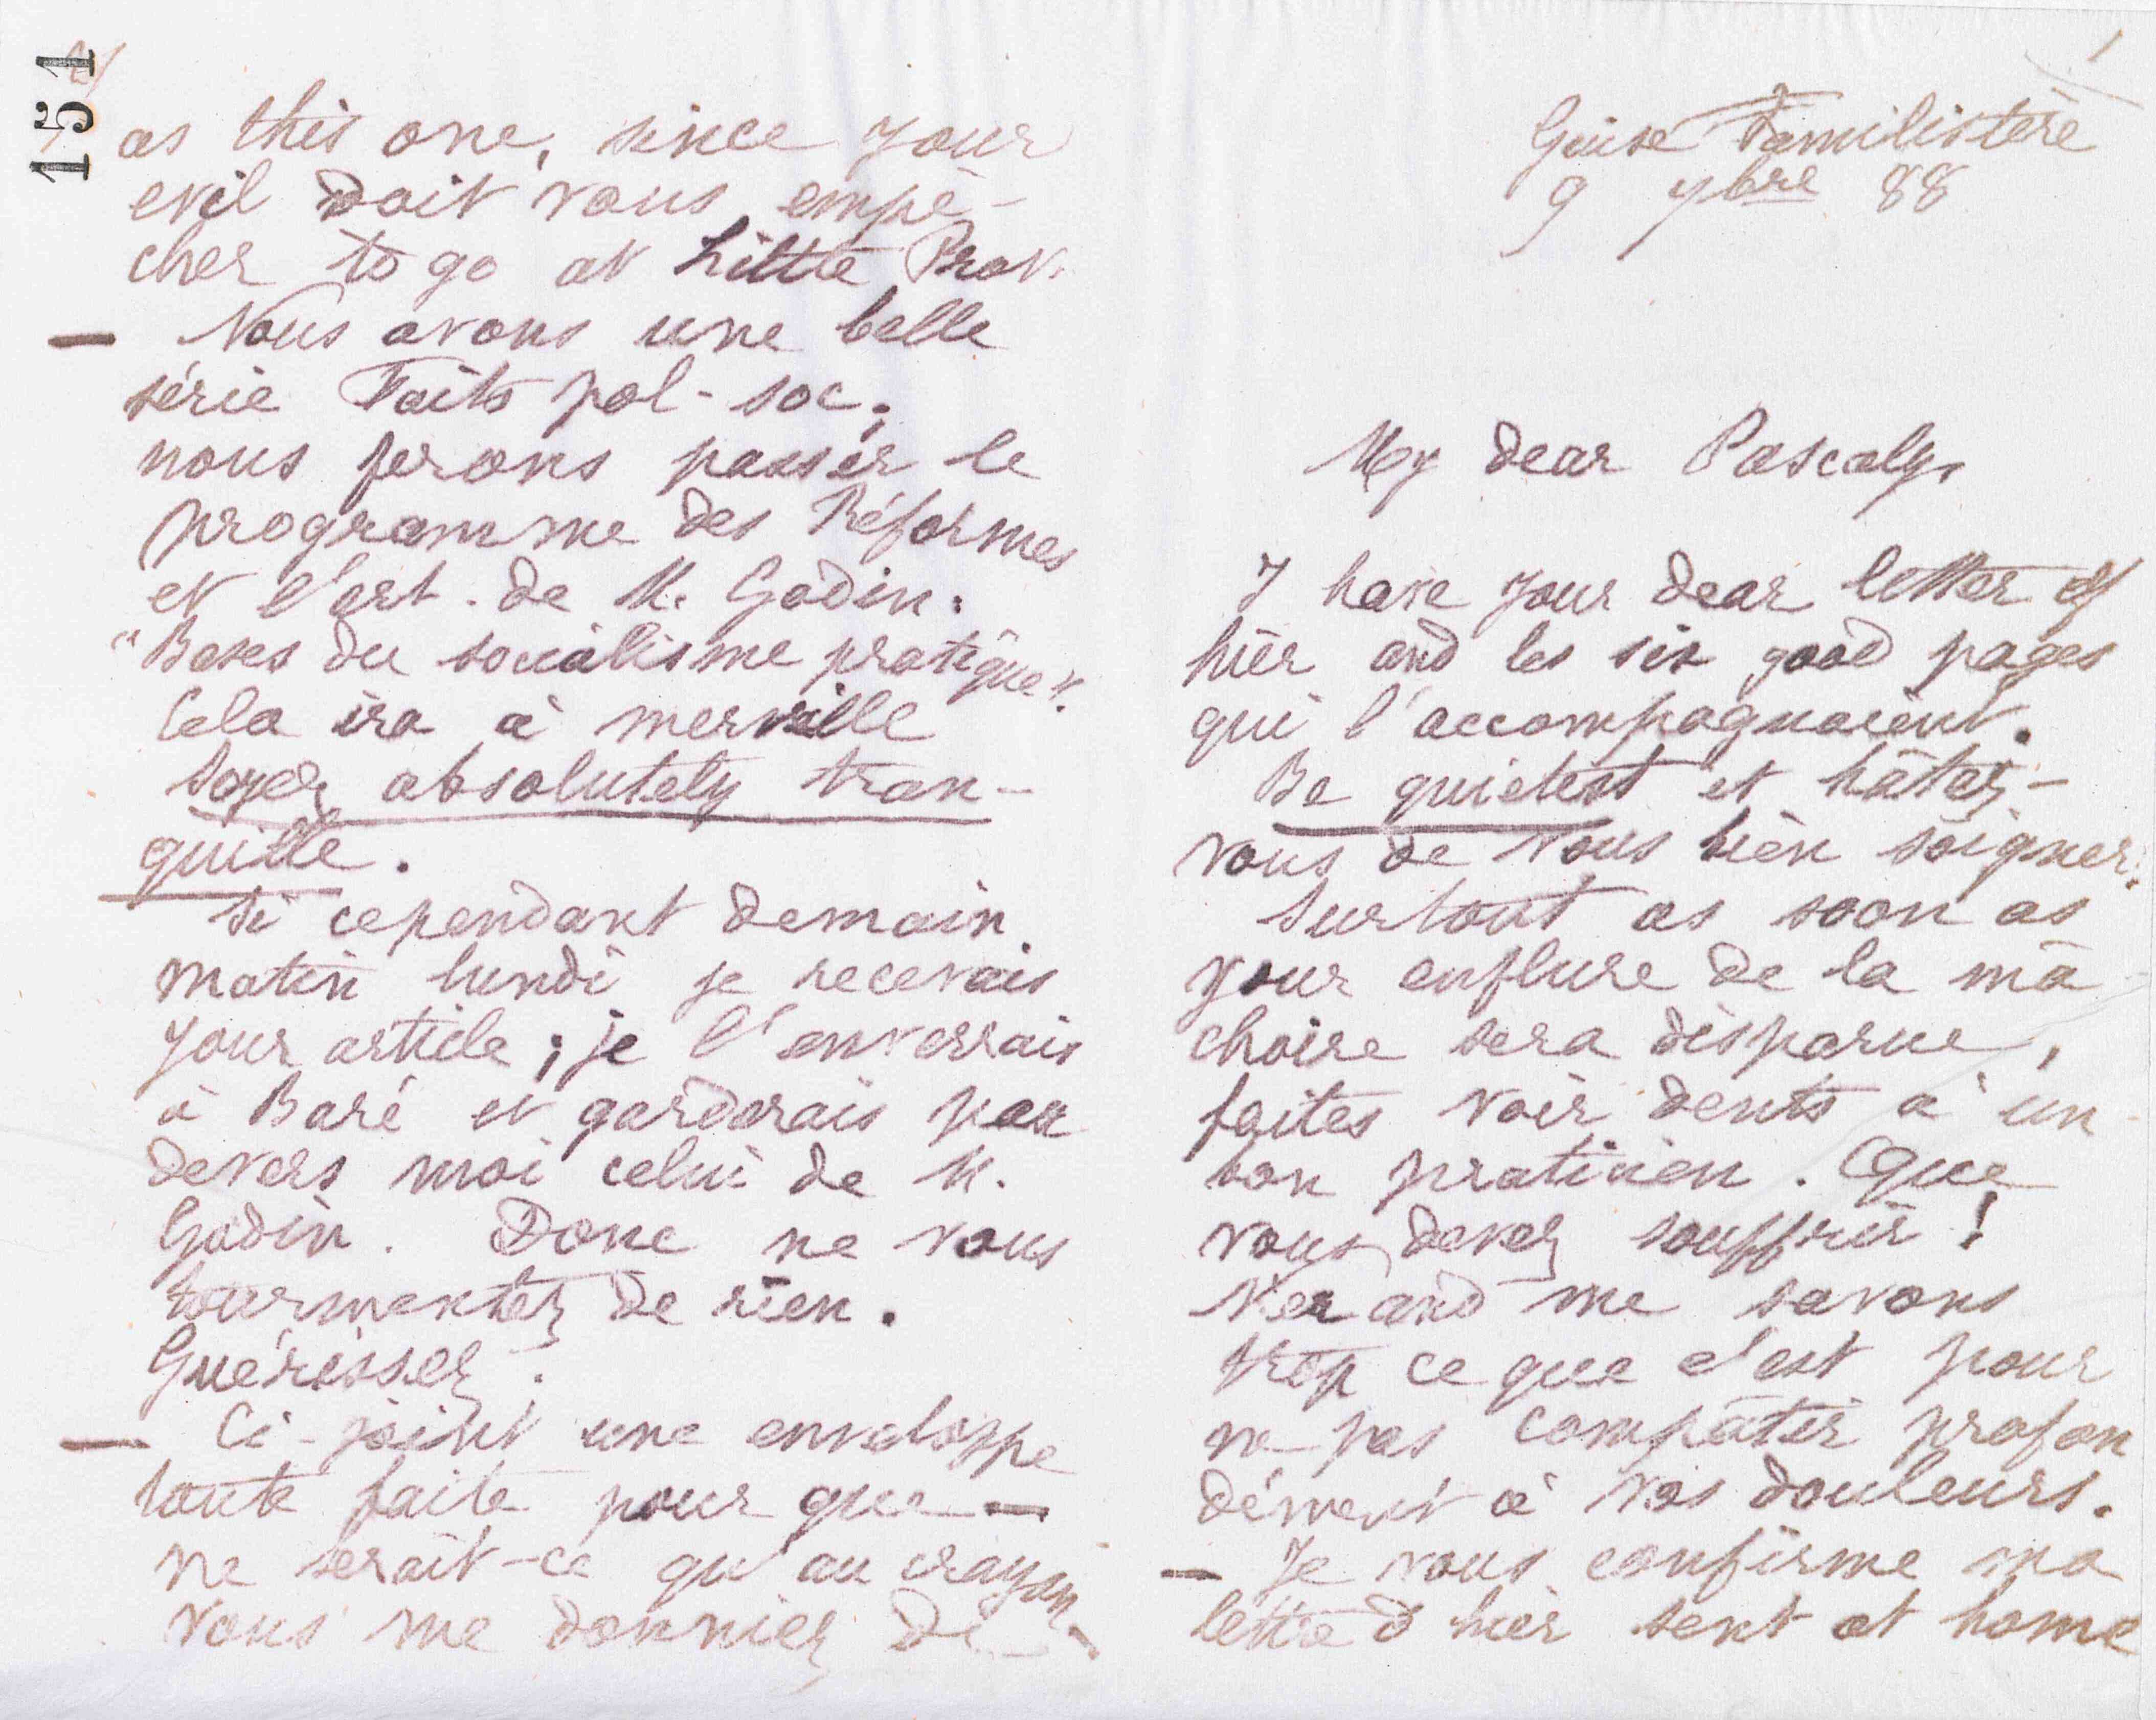 1
Guise Familistère
9 7bre 88
My dear Pascaly,
I have your dear letter of
hier and les six good pages
qui l'accompagnaient.
Be quietest et hâtez-
vous de vous bien soigner.
Surtout as soon as
your enflure de la mâ
choire sera disparue,
faites voir dents à un
bon praticien. Que
vous devez souffrir !
and me savons
trop ce que c'est pour
ne pas compatir profon
dément à vos douleurs.
— Je vous confirme ma
lettre d'hier sent at home
151
as this one, since your
evil doit vous empê-
cher to go at Little Prov.
— Nous avons une belle
série Faits pol-soc;
nous ferons passer le
programme des Réformes
et l'art. de M. Godin:
"Bases du socialisme pratique".
Cela ira à merveille
Soyez absolutely tran-
quille.
Si cependant demain
matin lundi je recevais
your article; je l'enverrais
à Baré et garderais par
devers moi celui de M.
Godin. Donc ne vous
tourmentez de rien.
Guérissez.
— Ci-joint une enveloppe
toute faite pour que —
ne serait-ce qu'au crayon —
vous me donniez de